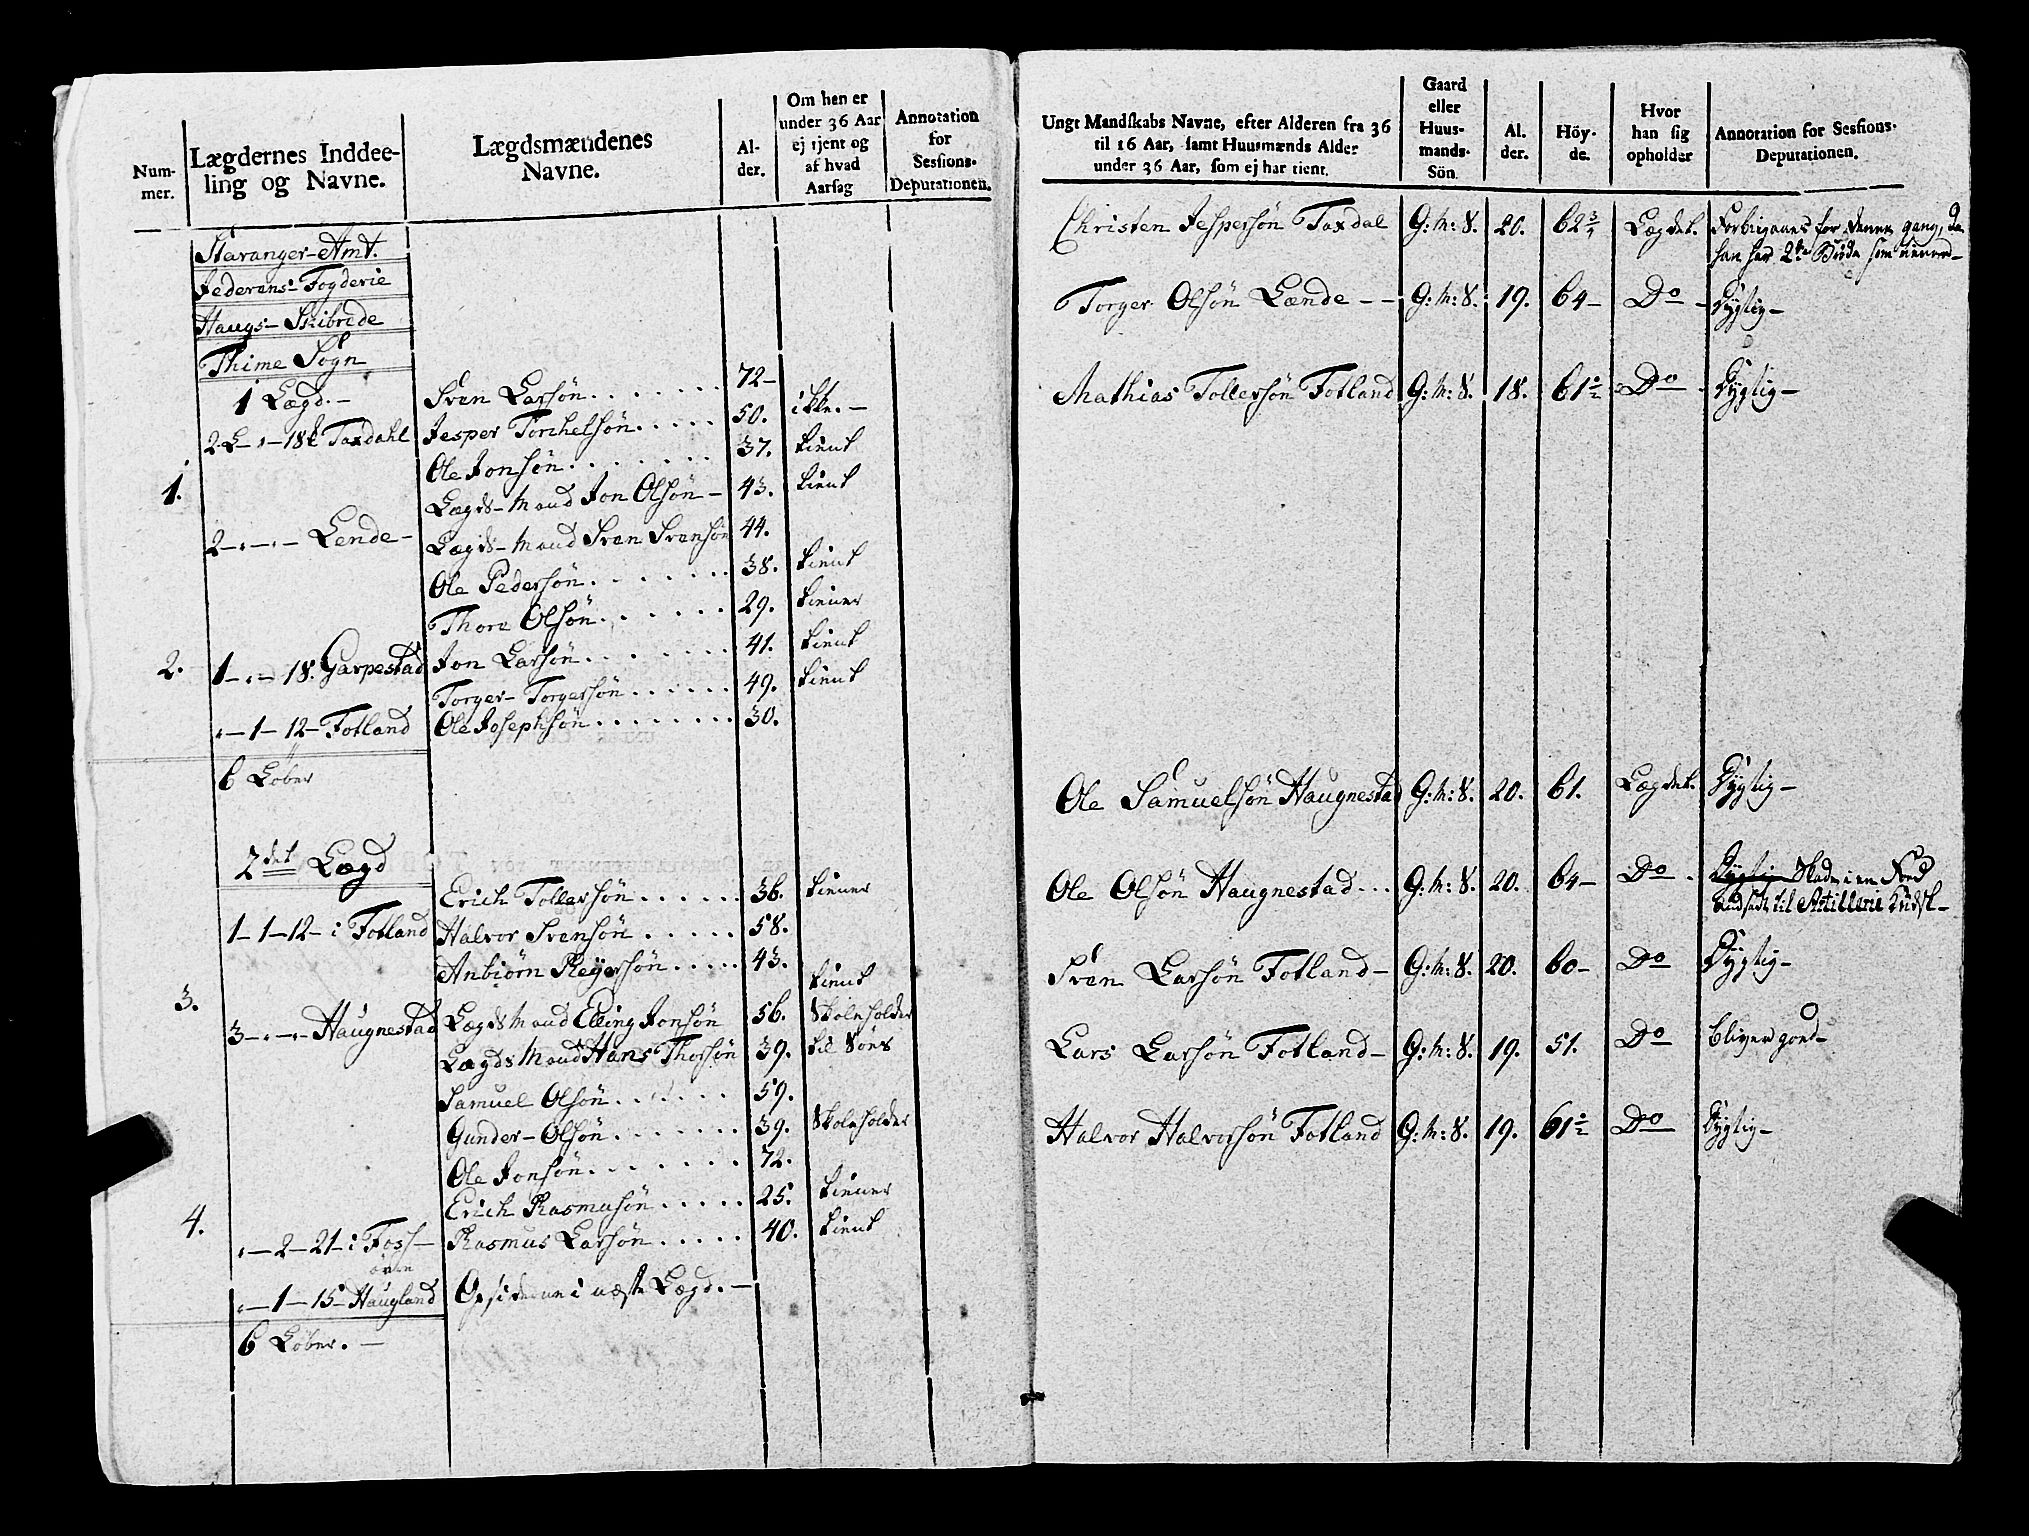 Num-
mer.
Lægdernes Inddee-
ling og Navne.
Lægdsmændenes
Navne.
Al-
der.
Om hen er
under 36 Aar
ej tjent og
af hvad
Aarsag
Annotation
for
Sessions-
Deputationen.
Stavanger-Amt.
Jederens-Fogderie
Haugs-Skibrede
Thime Sogn
1 Lægd.-
Sven Larsön 72-
2 L - 18 Taxdahl Jesper Torchelsön 50. ikke.-
Ole Jonsön 37. tient
1. Lægds-Mand Jon Olsön- 43. tient
2 - - - Lende- Lægds-Mand Sven Svensön 44.
Ole Pedersön 38. tient
Thore Olsön 29. tiener
2. 1 - - 18. Garpestad Jon Larsön 41. tient
Torger-Torgersön 49. tient
- 1 - 12 - Fotland Ole Josephsön 30.
6 Löber
2det Lægd
Erich Tollersön 36. tiener
1 - 1 - 12 - i Fotland Halvor Svensön 58.
Anbiörn Reyersön 43. tient
3. 3 - - - Haugnestad Lægds Mand Elling Jonsön 56. Skoleholder
Lægds Mand Hans Thorsön 39. til Söes
Samuel Olsön 59.
Gunder-Olsön 39. Skoleholder
Ole Jonsön 72.
Erich Rasmusön 25. tiener
4. - 2 - 21 - i Foss- Rasmus Larsön 40. tient
öven
- 1 - 15 - Haugland Opsiderne i næste Lægd.-
6 Löber.-
Ungt Mandskabs Navne, efter Alderen fra 36
til 16 Aar, samt Huusmænds Alder
under 36 Aar, som ej har tient.
Gaard
eller
Huus-
mands-
Sön.
Al.
der.
Höy-
de.
Hvor
han sig
opholder
Annotation for Sessions-
Deputationen.
Christen Jespersön Taxdal G:M:S. 20. 62 3/4 Lægdet. Forbigaaes for denne gang, da
han har 2de Brödre som
Torger Olsön Lænde - - G:M:S. 19. 64- Do - Dygtig-
Mathias Tollersön Fotland G:M:S. 18. 61 1/2 Do Dygtig-
Ole Samuelsön Haugnestad G:M:S. 20. 61. Lægdet. Dygtig-
Ole Olsön Haugnestad G:M:S. 20. 64- Do Dygtig Skade i en Food
til Artillerie Kudsk-
Sven Larsön Fotland- G:M:S. 20. 60- Do Dygtig-
Lars Larsön Fotland- G:M:S. 19. 51. Do bliver goed-
Halvor Halvorsön Fotland G:M:S. 19. 61 1/2 Do Dygtig-